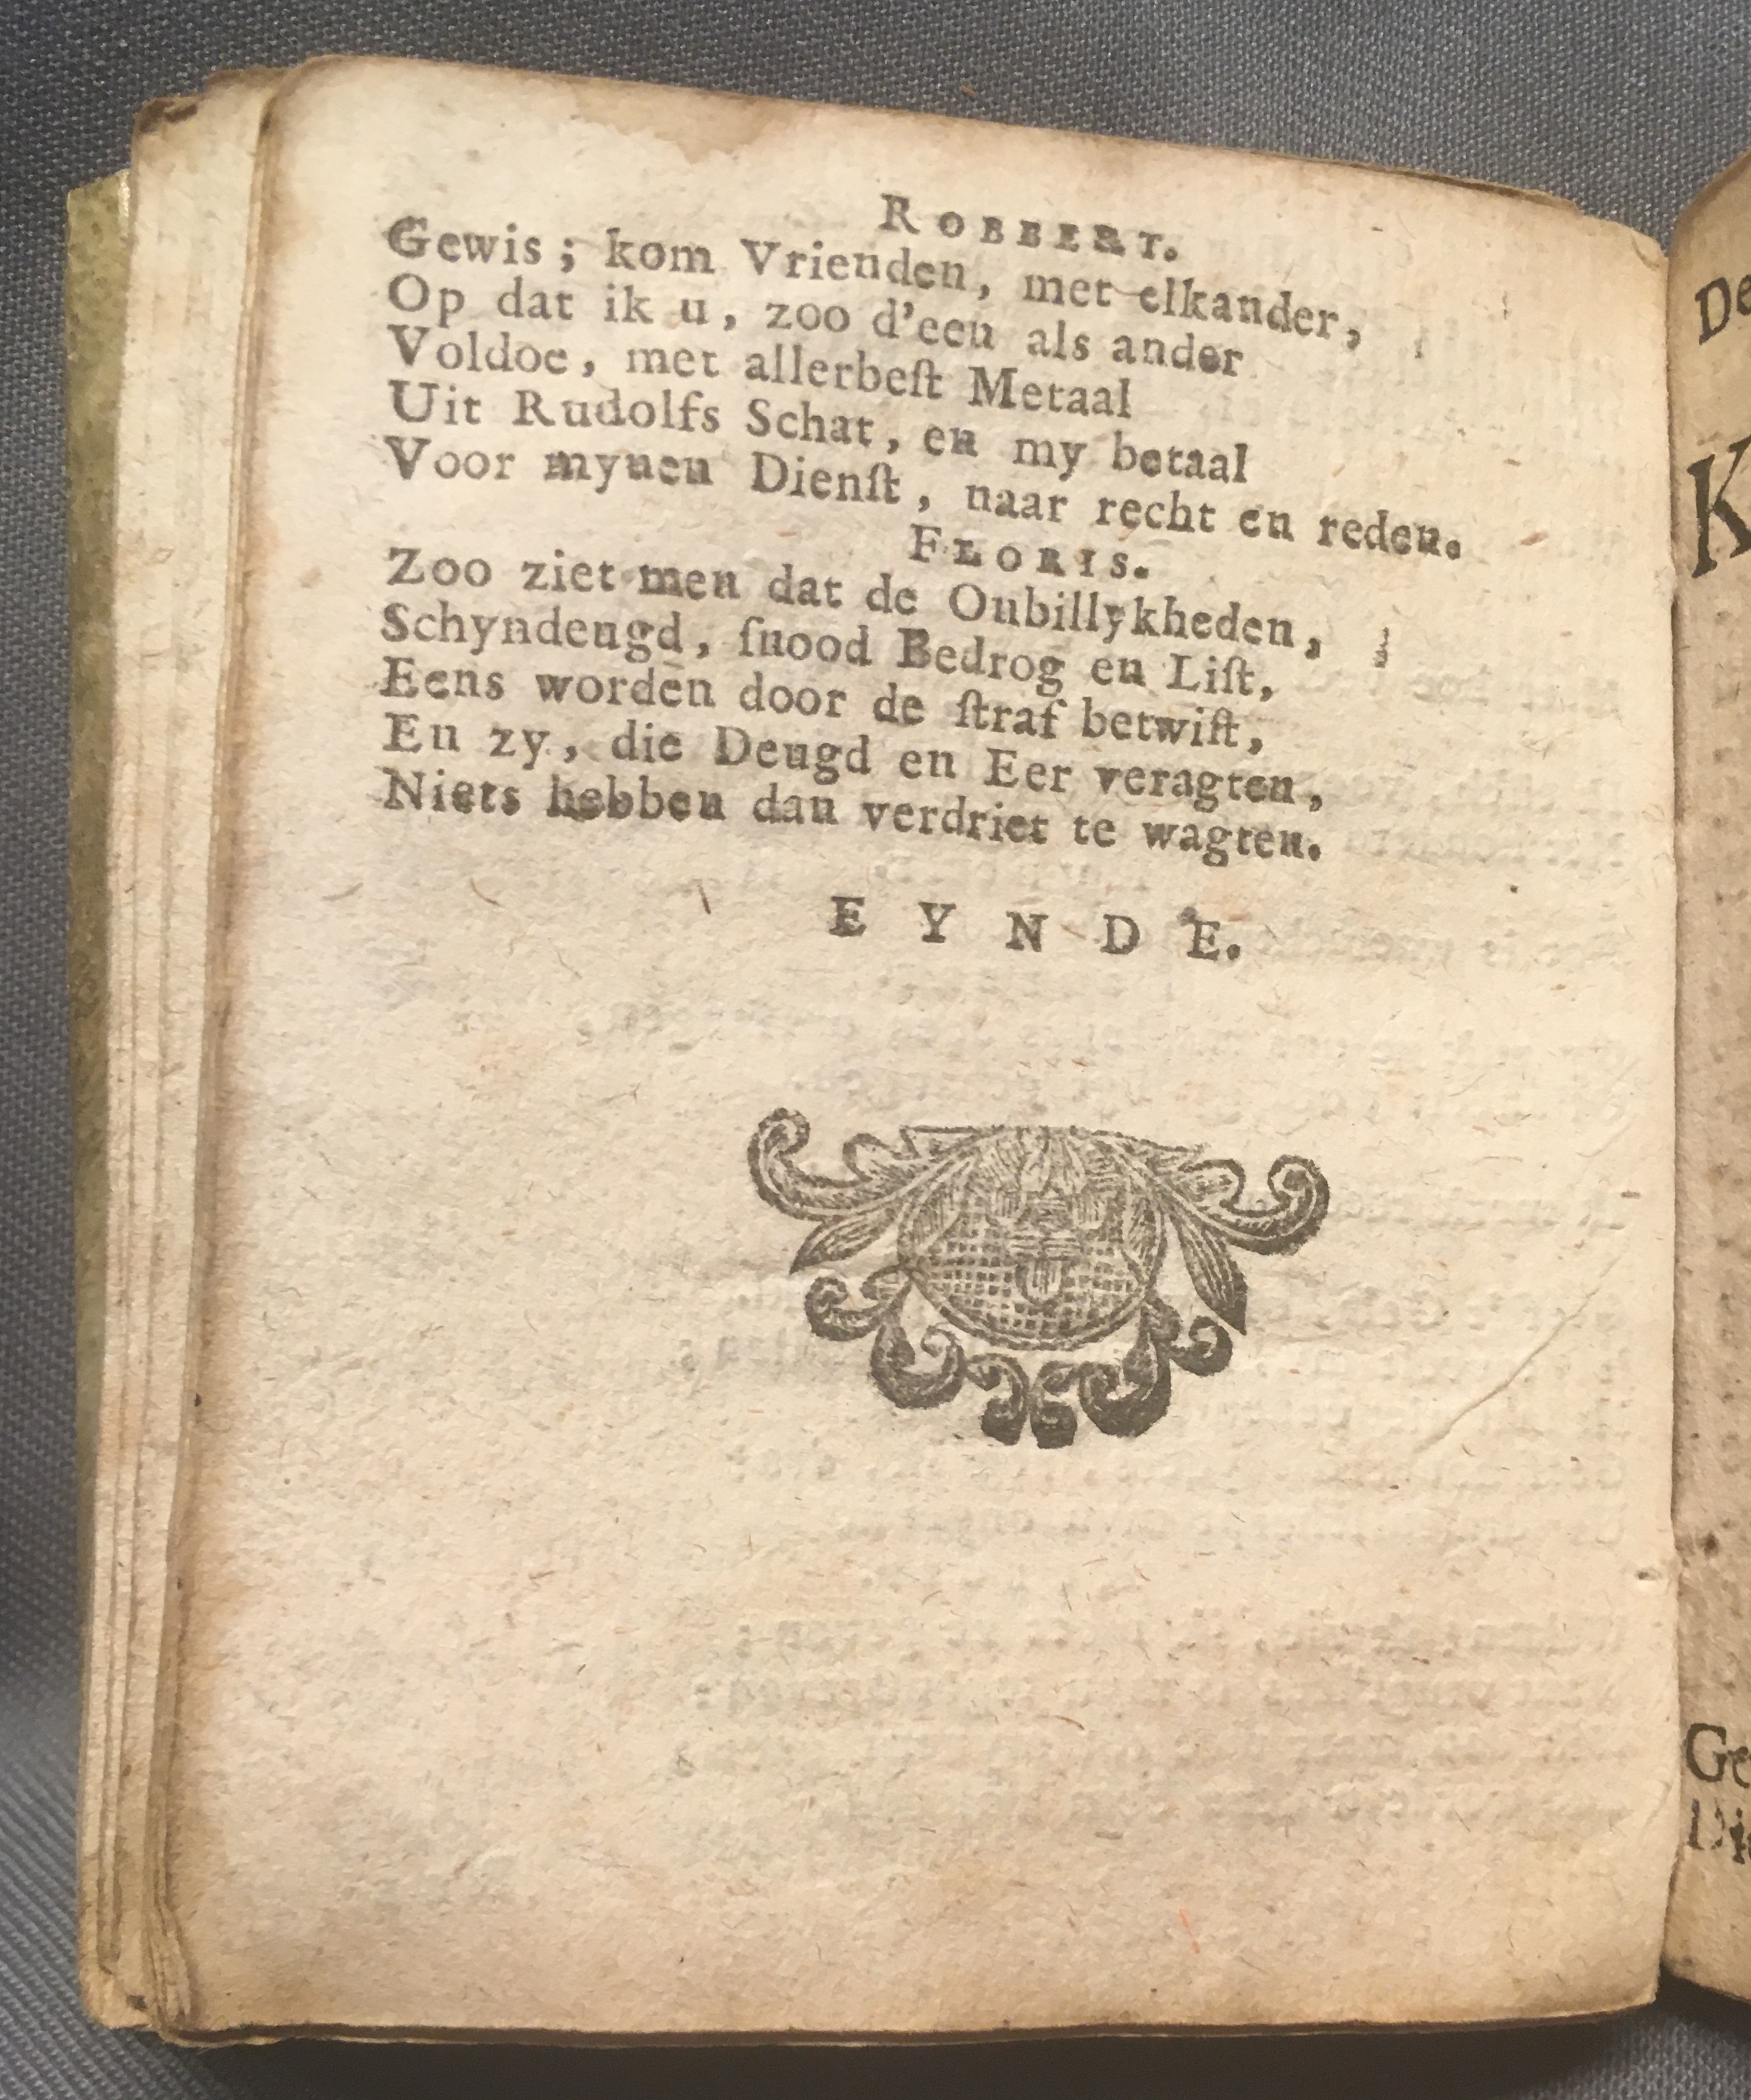 ROBBERT.
Gewis; kom Vrienden, met elkander,
Op dat ik u, zoo d'een als ander
Voldoe, met allerbeſt Metaal
Uit Rudolfs Schat, en my betaal
Voor mynen Dienſt, naar recht en reden.
FLORIS.
Zoo ziet men dat de Onbillykheden,
Schyndeugd, ſnood Bedrog en Liſt,
Eens worden door de ſtraf betwiſt,
En zy, die Deugd en Eer veragten,
Niets hebben dan verdriet te wagten.
EYNDE.
De
K
Ge